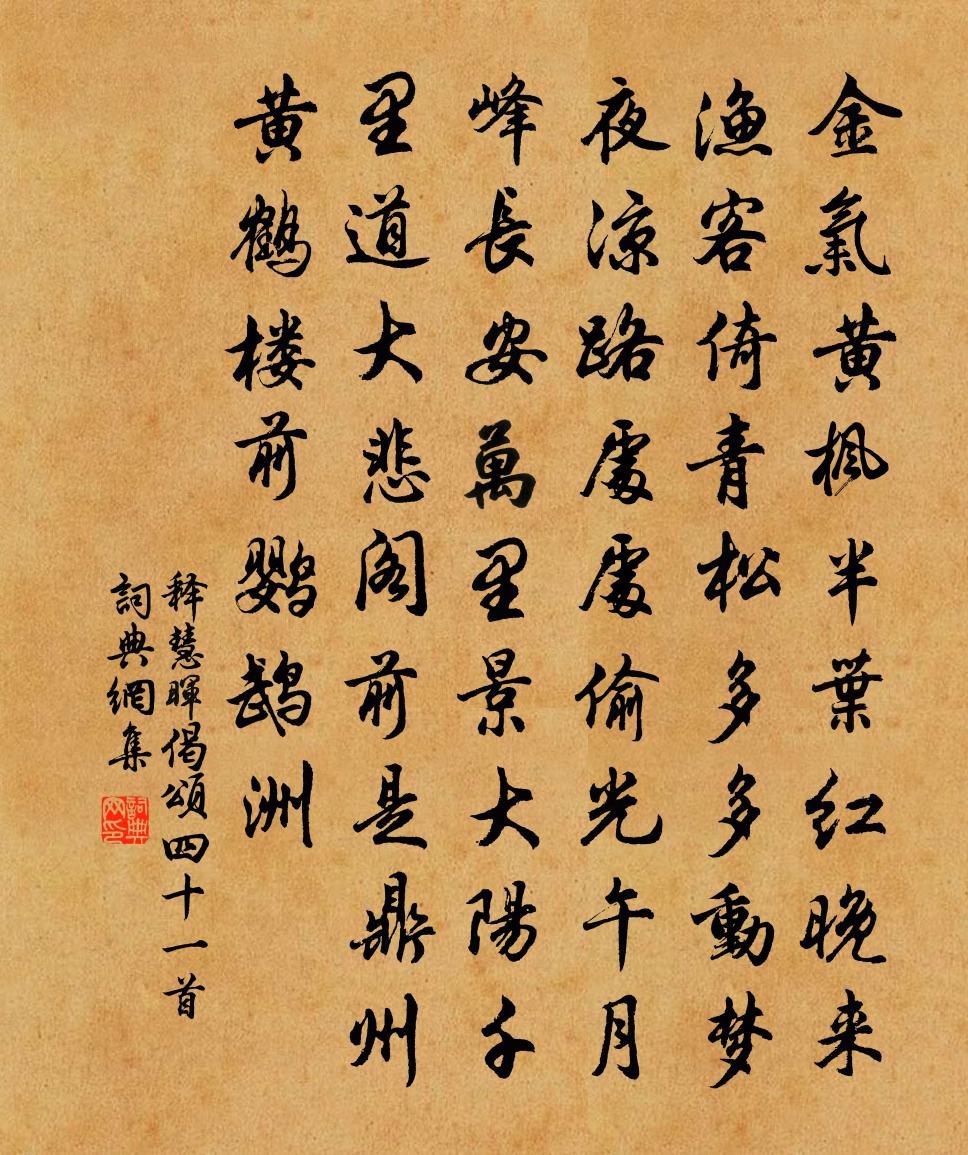 金氣黄楓半葉红晚来
渔客倚青松多多動梦
夜凉路處處偷光午月
峰長安萬里景大陽千
里道大悲阁前是鼎州
黄鹤楼前鹦鹉洲
释慧暉偈頌四十一首
詞典網集
詞典网印